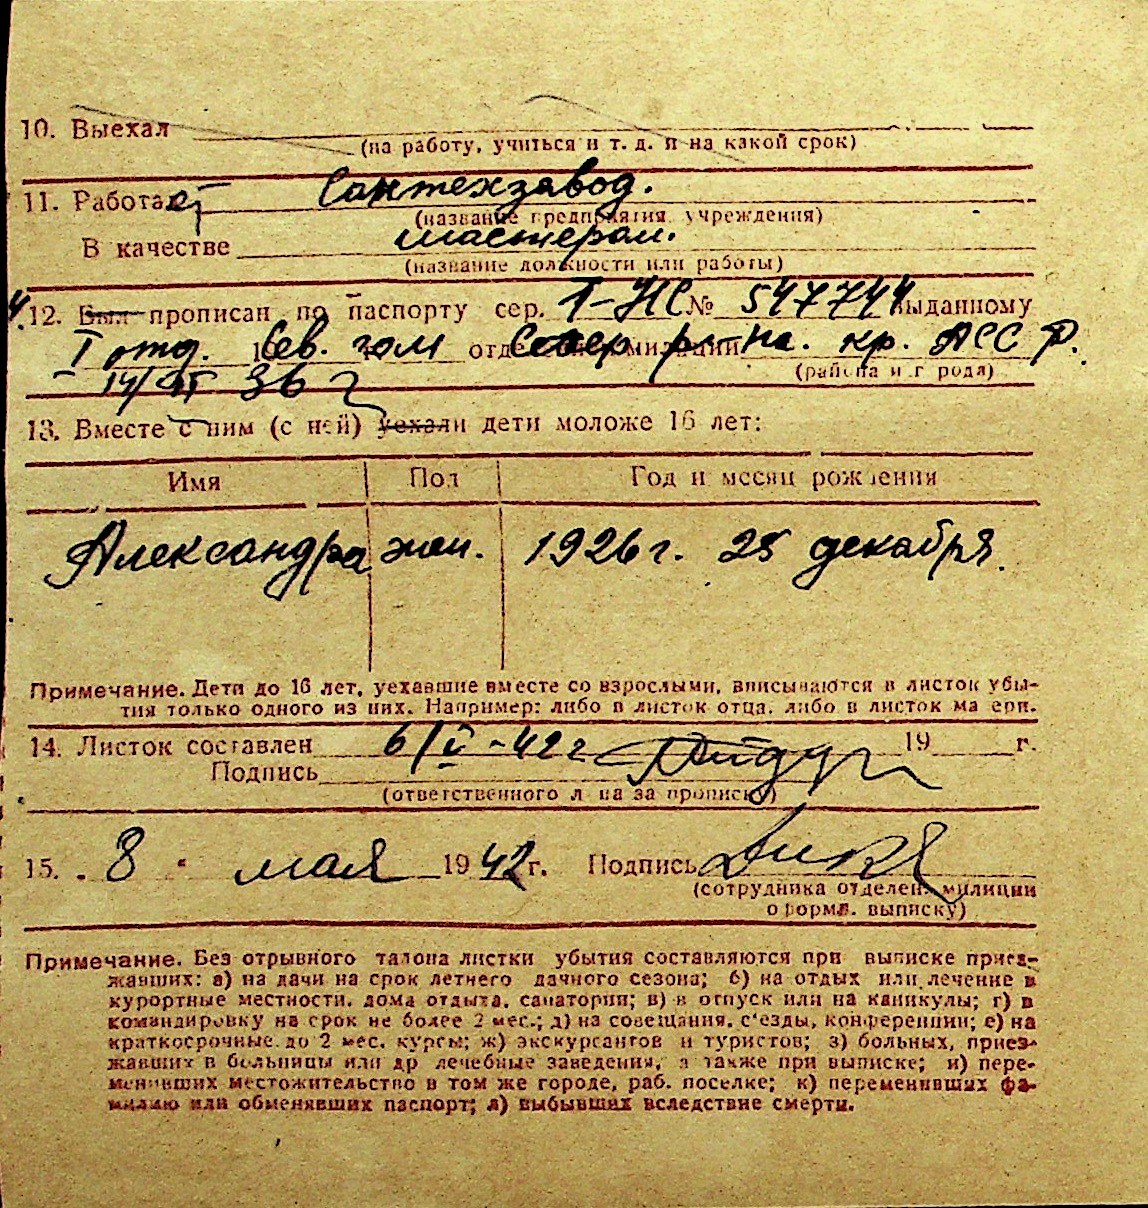 10. Выехал
(на работу, учиться и т. д. и на какой срок)
11. Работает Сантехзавод.
(название предприятия, учреждения)
В качестве мастером.
(название должности или работы)
12. Был прописан по паспорту сер. Т-НС № 547744 выданному
I отд. Сев. гом отделен. милиции Север р-на. кр. АССР.
(района и г рода)
14/VII 36 г
13. Вместе с ним (с ней) уехали дети моложе 16 лет:
Имя Пол Год и месяц рождения
Александра жен. 1926 г. 25 декабря.
Примечание. Дети до 16 лет, уехавшие вместе со взрослыми, вписываются в листок убы-
тия только одного из них. Например: либо в листок отца, либо в листок матери.
14. Листок составлен 6/V-42 г 19 г.
Подпись
(ответственного лица за прописку)
15. „ 8 “ мая 1942 г. Подпись
(сотрудника отделен. милиции
оформл. выписку)
Примечание. Без отрывного талона листки убытия составляются при выписке приез-
жавших: а) на дачи на срок летнего дачного сезона; б) на отдых или лечение в
курортные местности, дома отдыха, санатории; в) в отпуск или на каникулы; г) в
командировку на срок не более 2 мес.; д) на совещания, с'езды, конференции; е) на
краткосрочные до 2 мес. курсы; ж) экскурсантов и туристов; з) больных, приез-
жавших в больницы или др лечебные заведения, а также при выписке; и) пере-
менивших местожительство в том же городе, раб. поселке; к) переменивших фа-
милию или обменявших паспорт; л) выбывших вследствие смерти.